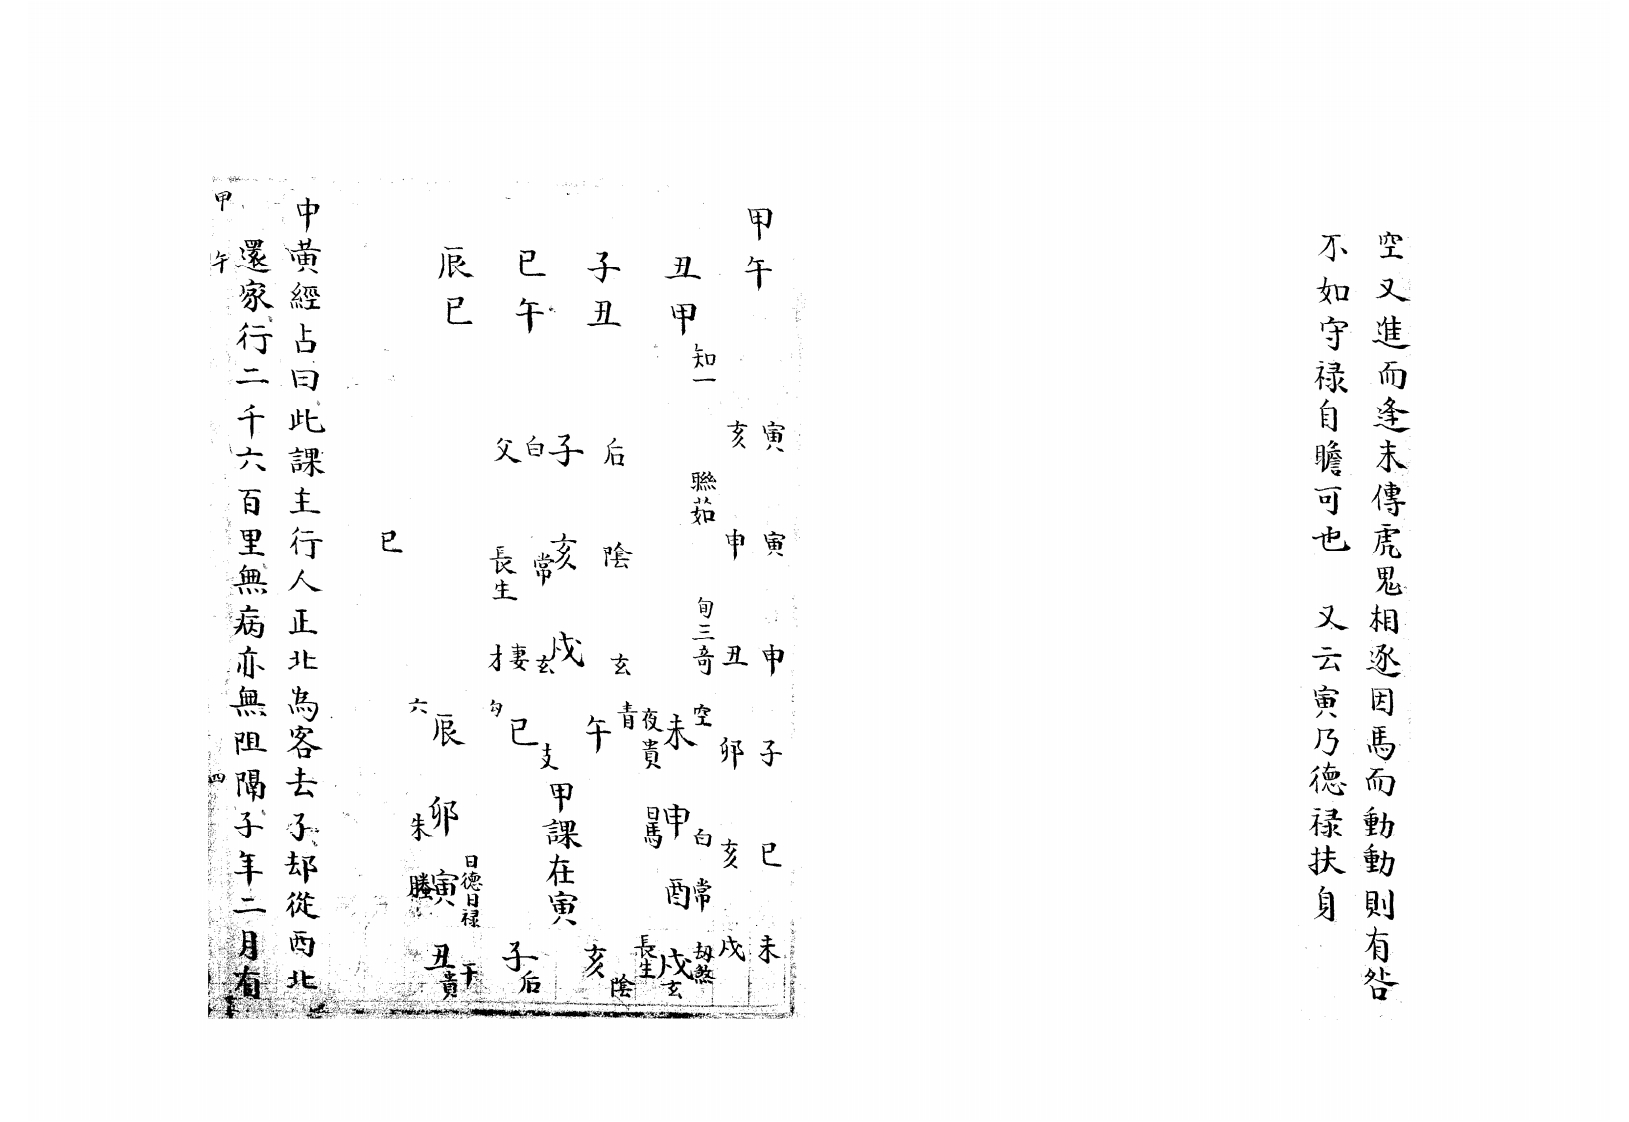 空又進而逢末傳虎鬼相逐因馬而動動則有咎
不如守祿自贍可也　又云寅乃德祿扶身
甲午
丑甲
子丑
巳午
辰巳
寅 寅 申 子 巳 未
亥 申 丑 卯 亥 戌
知一 聯茹 旬三奇
后 子 白 父
陰 亥 常 長生
玄 戌 玄 妻才
巳
空 未 夜貴
白 申 日馬
常 酉
劫煞 戌 玄 長生
青 午
亥 陰
勾 巳 支
甲課在寅
子 后
六 辰
朱 卯
螣 寅 日德日祿
丑 貴 干
中黃經占曰此課主行人正北為客去子却從西北
還家行二千六百里無病亦無阻隔子年二月有
甲午 四